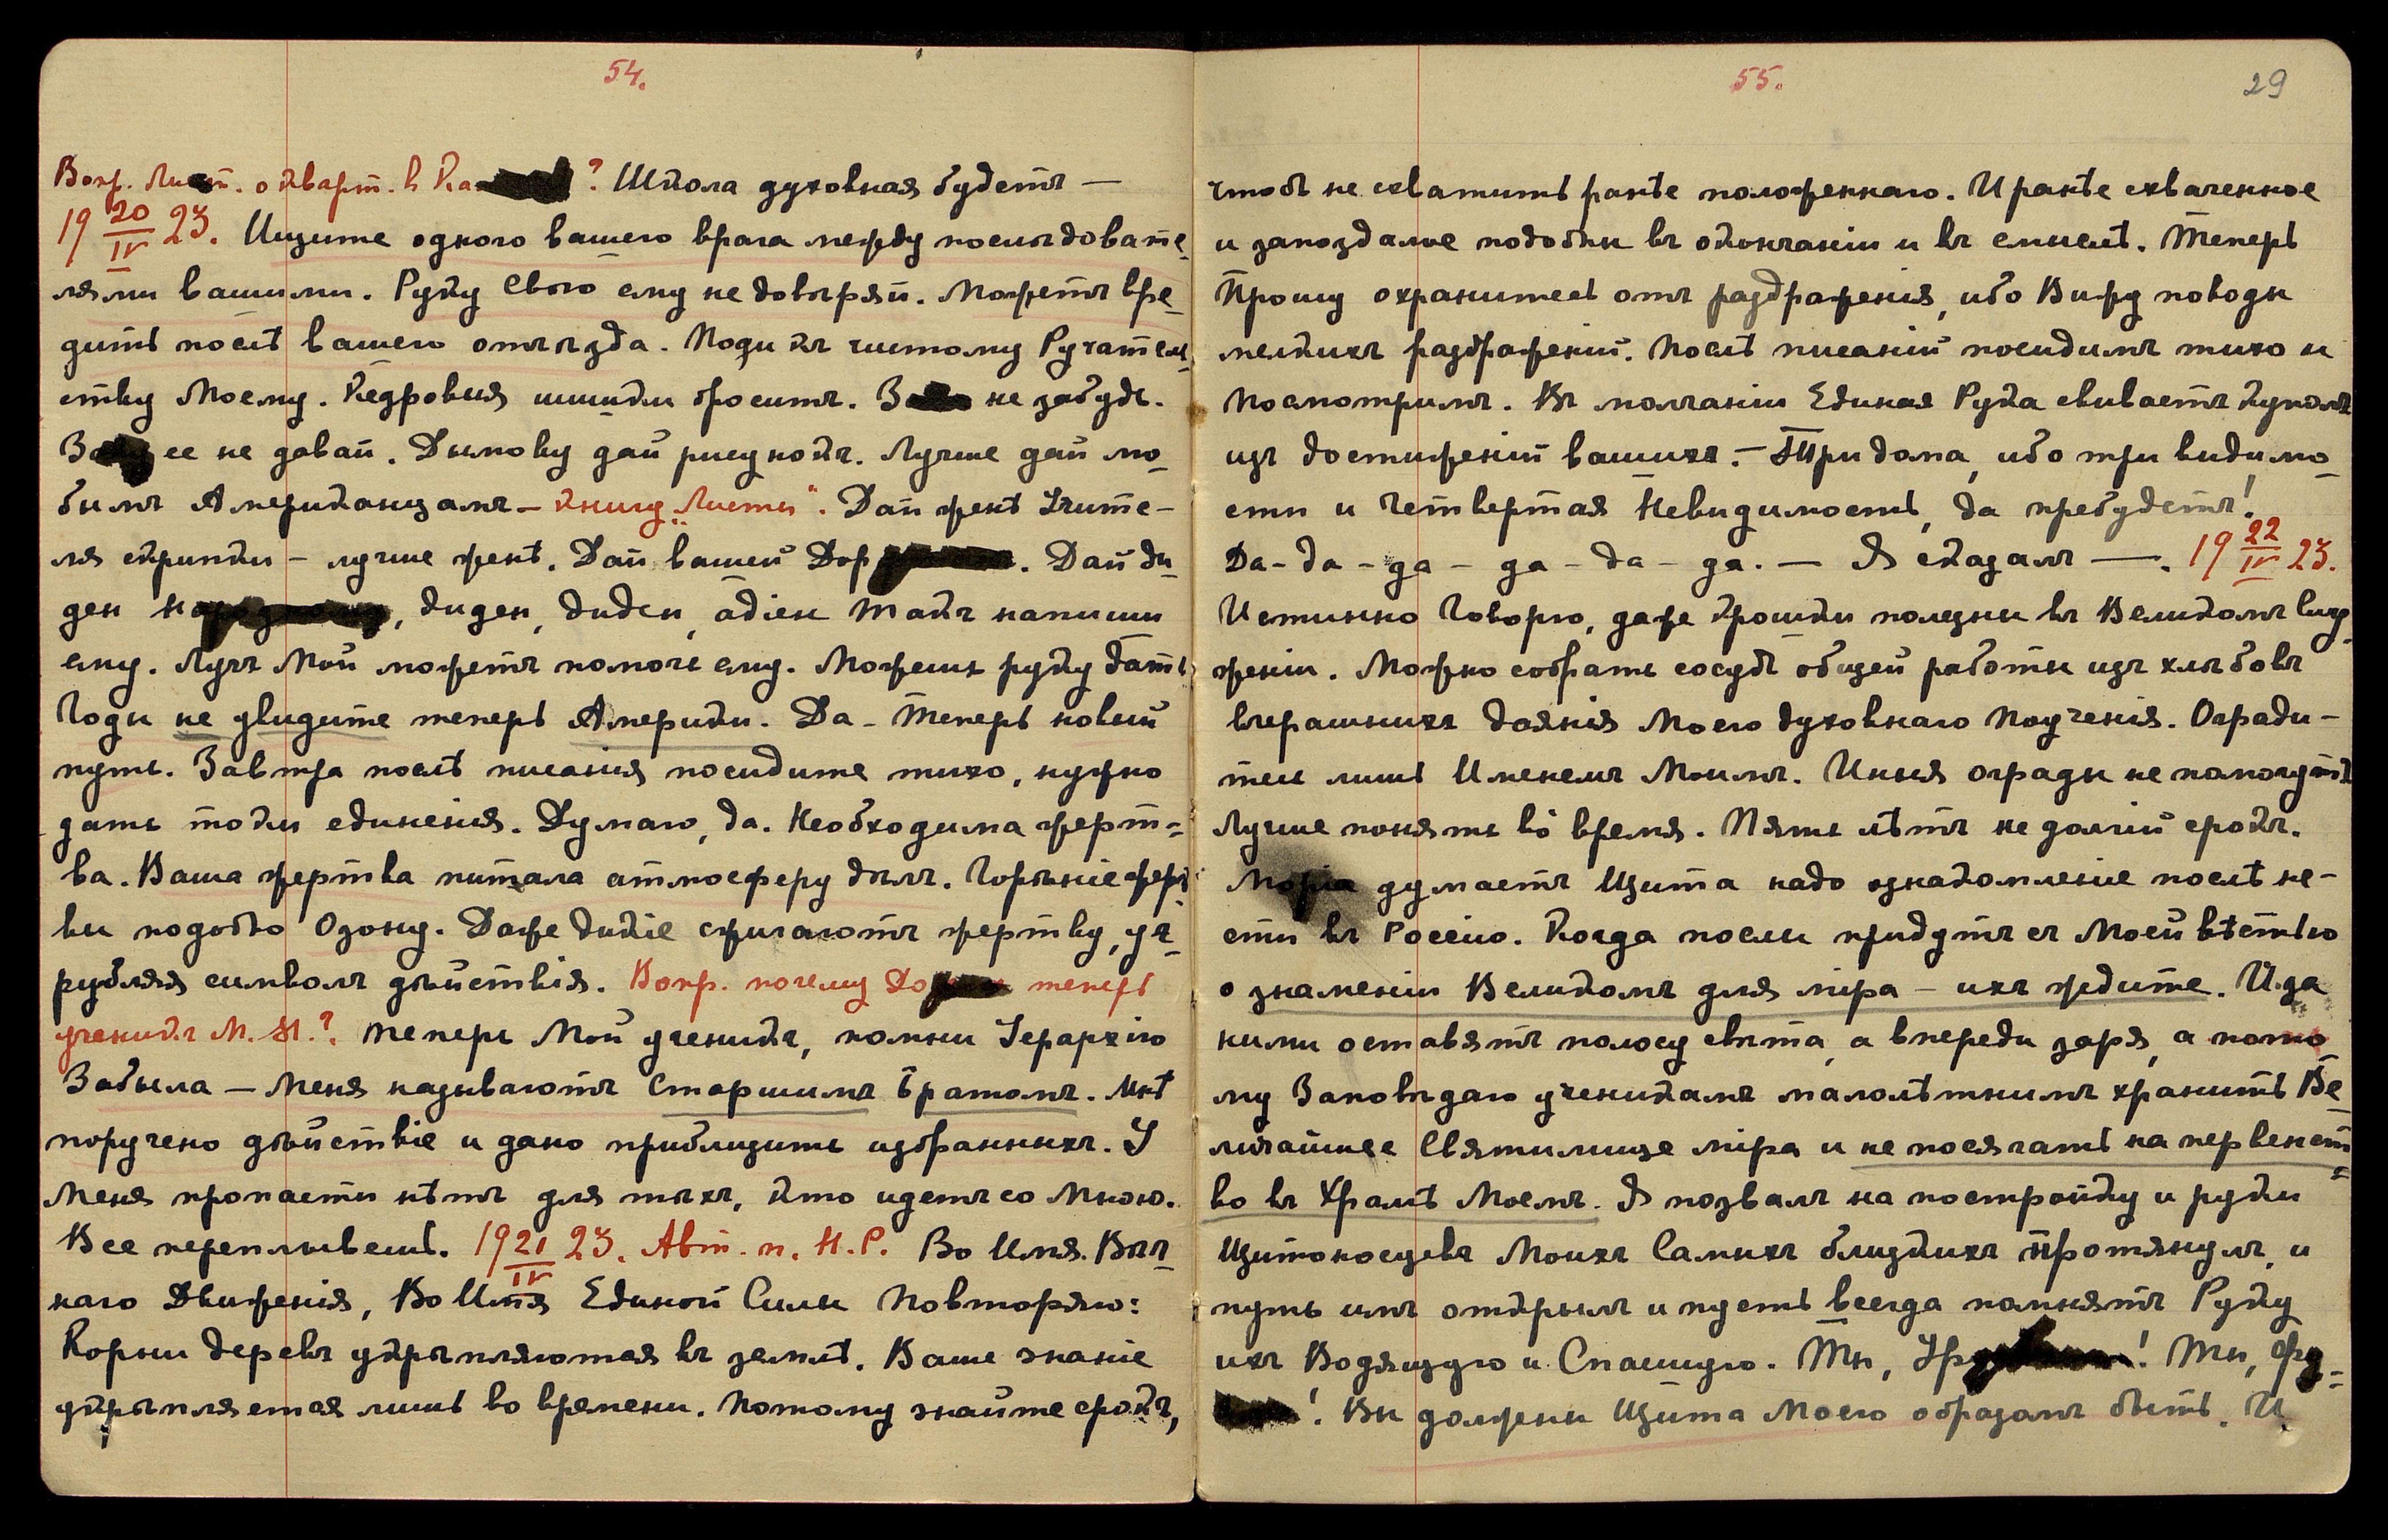 54.
Вопр. Лист. о кварт. в Ка ? Школа духовная будетъ —
19 20/IV 23. Ищите одного вашего врага между последовате-
лями вашими. Руку Свою ему не довѣряй. Можетъ вре-
дить послѣ вашего отъѣзда. Поди къ чистому Ручатель-
ству Моему. Кедровыя шишки броситъ. не забудь.
ее не давай. Дымову дай рисунокъ. Лучше дай лю-
бымъ Американцамъ — книгу „Листы“. Дай женѣ Учите-
ля скрипки — лучше женѣ. Дай вашей Дор . Дай ди-
ден , диден, диден, адіен такъ напиши
ему. Лучъ Мой можетъ помочь ему. Можешь руку дать
Годы не увидите теперь Америки. Да — Теперь новый
путь. Завтра послѣ писанія посидите тихо, нужно
дать токи единенія. Думаю, да. Необходима жерт-
ва. Ваша жертва питала атмосферу дѣлъ. Горѣніе жерт-
вы подобно Озону. Даже дикіе сжигаютъ жертву, уг-
рубляя символъ дѣйствія. Вопр. почему До теперь
ученикъ М. Н.? Теперь Мой ученикъ, помни Іерархію
Забыла — Меня называютъ Старшимъ Братомъ. Мнѣ
поручено дѣйствіе и дано приблизить избранныхъ. У
Меня пропасти нѣтъ для тѣхъ, кто идетъ со Мною.
Все переплывешь. 19 21/IV 23. Авт. п. Н. Р. Во Имя Вѣч-
наго Движенія, Во Имя Единой Силы Повторяю:
Корни деревъ укрѣпляются въ землѣ. Ваше знаніе
укрѣпляется лишь во времени. Потому знайте срокъ,
55.
29
чтобъ не схватить ранѣе положеннаго. И ранѣе схваченное
и запоздалое подобны въ окончаніи и въ смыслѣ. Теперь
Прошу охранитесь отъ раздраженія, ибо Вижу поводы
мелкихъ раздраженій. Послѣ писаній посидимъ тихо и
посмотримъ. Въ молчаніи Единая Рука свиваетъ куполъ
изъ достиженій вашихъ. — Три дома, ибо три видимо-
сти и Четвертая Невидимость, да пребудетъ!
Да — да — да — да — да — да. — Я сказалъ —. 19 22/IV 23.
Истинно Говорю, даже крошки полезны въ Великомъ Движ-
женіи. Можно собрать сосудъ общей работы изъ хлѣбовъ
вчерашнихъ даянія Моего духовнаго Поученія. Огради-
теся лишь Именемъ Моимъ. Иныя ограды не помогутъ
Лучше понять во́ время. Пять лѣтъ не долгій срокъ.
Моріа думаетъ Щита надо ознакомленіе послѣ не-
сти въ Россію. Когда послы придутъ съ Моей вѣстью
о знаменіи Великомъ для міра — ихъ ждите. И за
ними оставятъ полосу свѣта, а впереди заря, а пото-
му Заповѣдаю ученикамъ малолѣтнимъ хранить Ве-
личайшее Святилище міра и не посягать на первенст-
во въ Храмѣ Моемъ. Я позвалъ на постройку и руки
Щитоносцевъ Моихъ Самыхъ близкихъ Протянулъ, и
путь имъ открылъ и пусть всегда помнятъ Руку
ихъ Водящую и Спасшую. Ты, Ур ! Ты, Фу-
! Вы должны Щита Моего образомъ быть. И